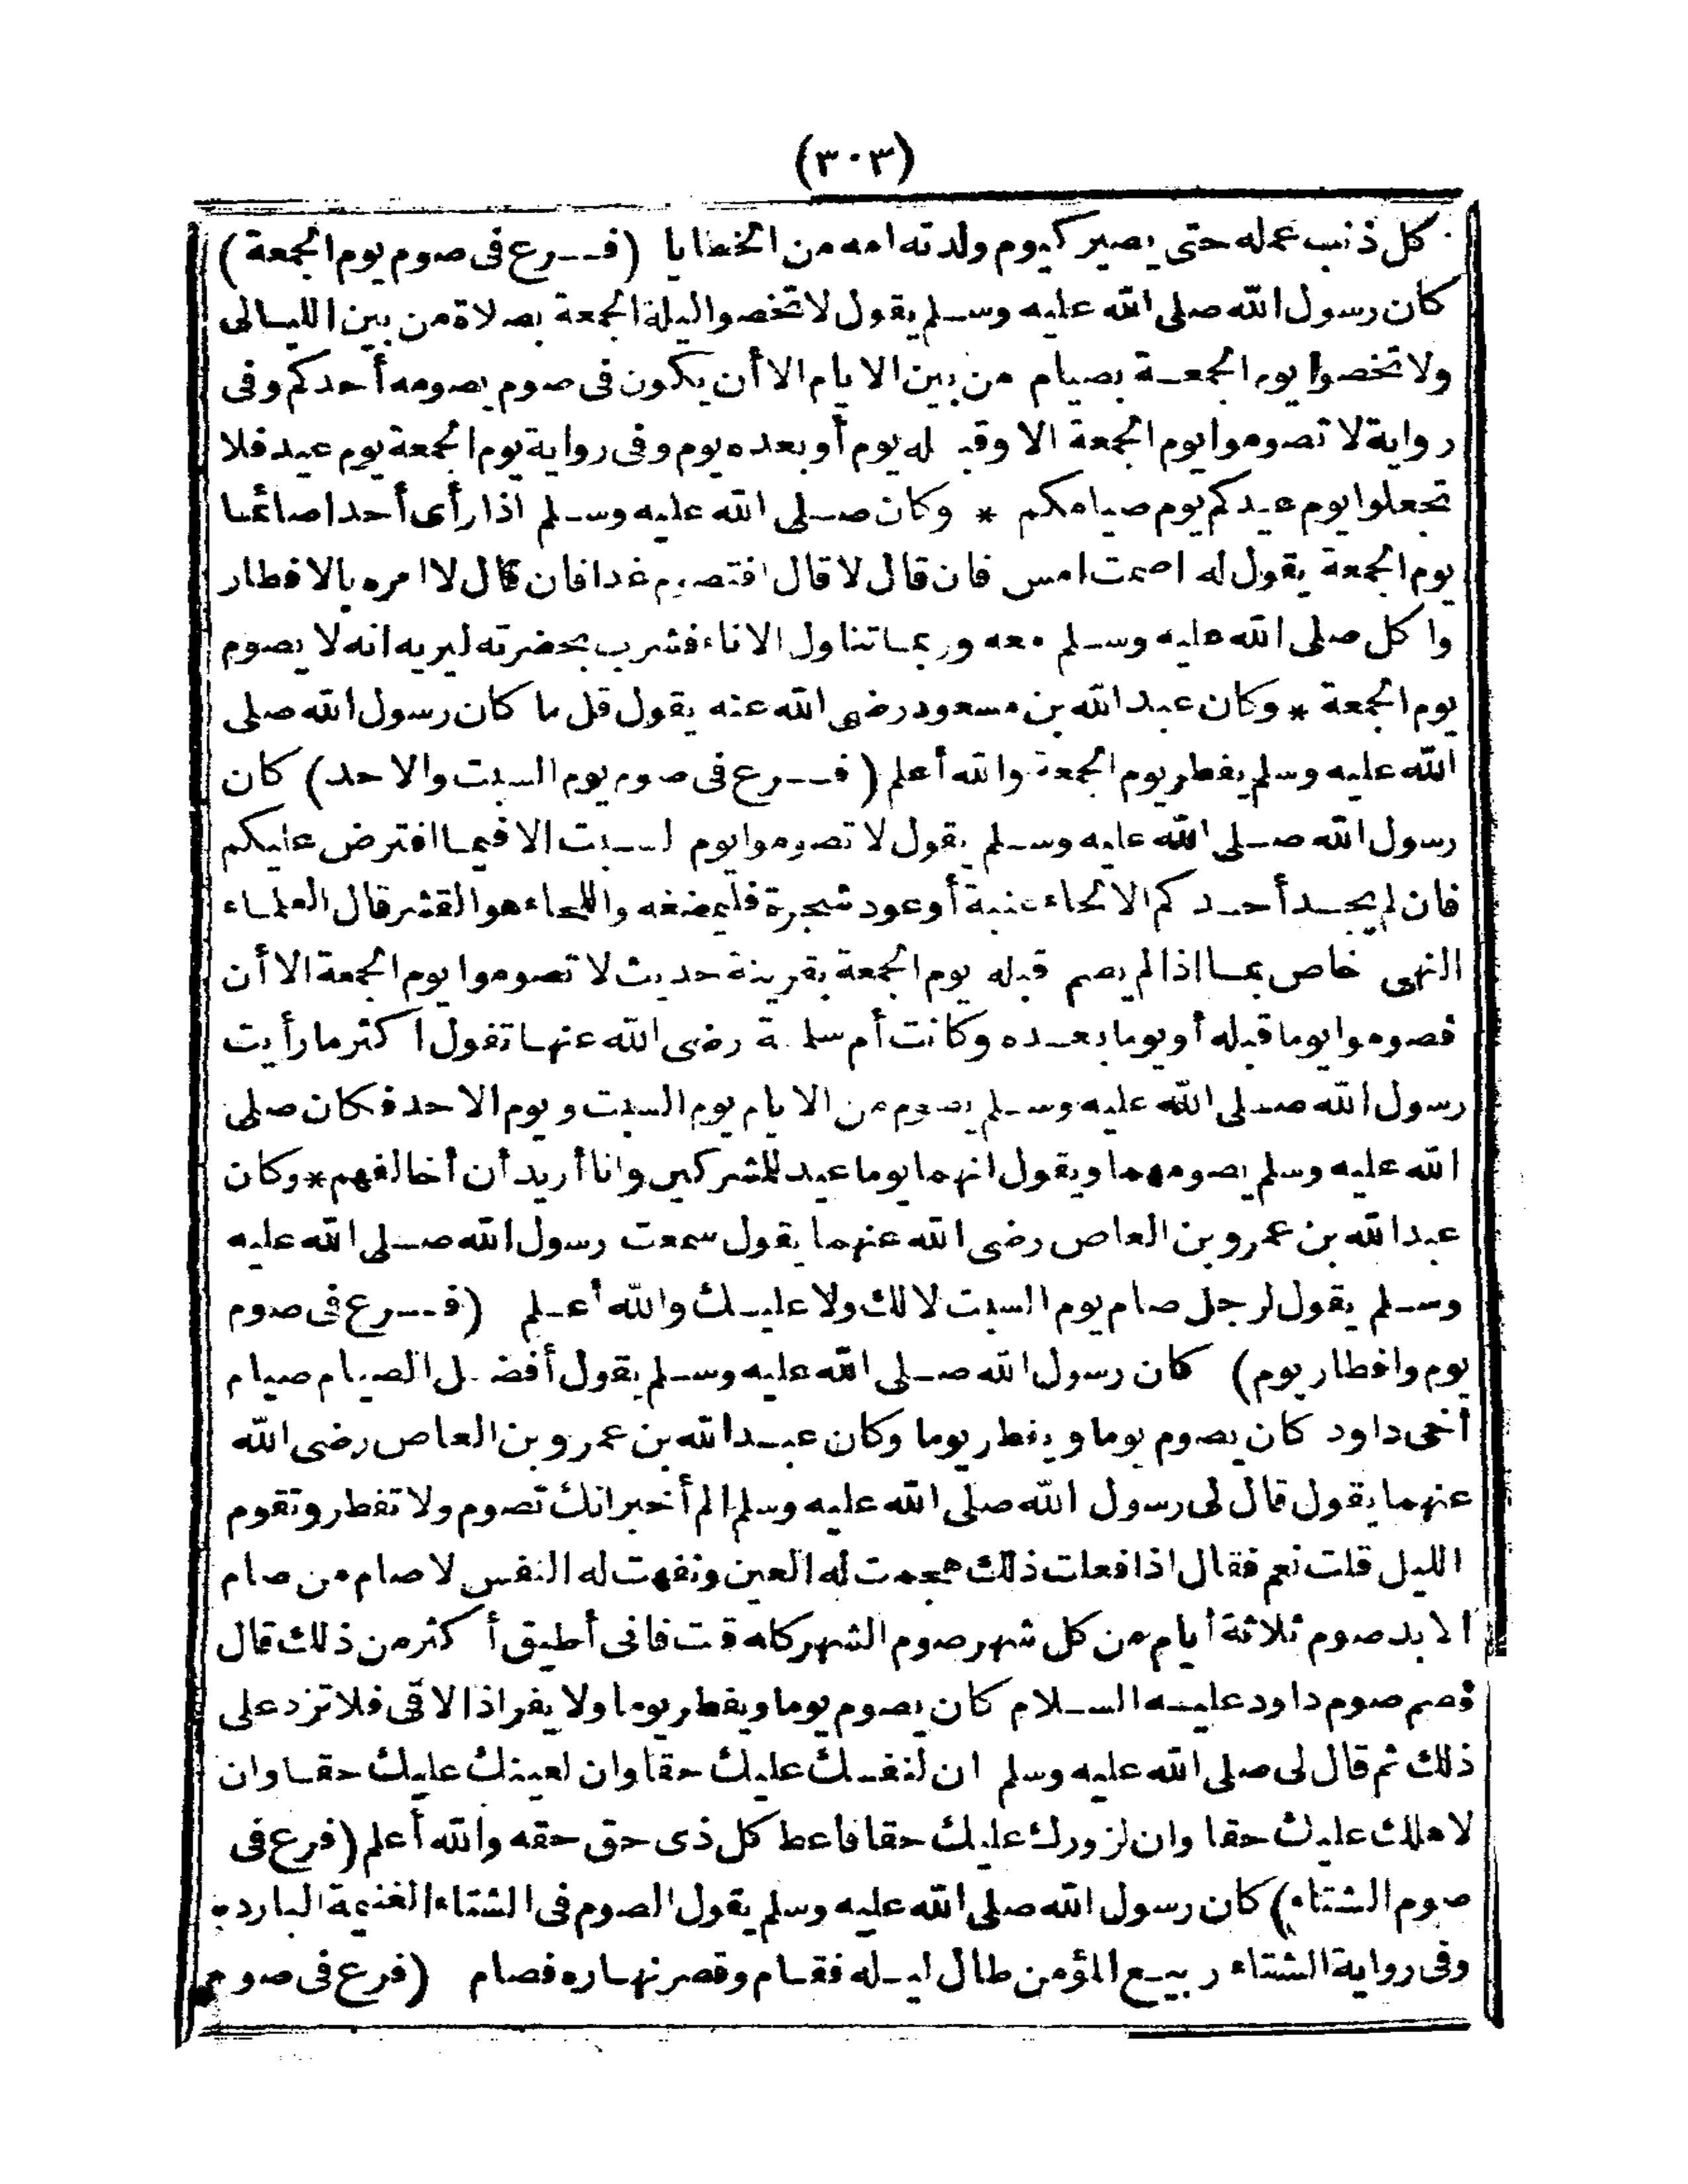 (٣٠٣)
كل ذنب عمله حتى يصير كيوم ولدته امه من الخطايا (فـــرع فى صوم يوم الجمعة)
كان رسول الله صلى الله عليه وسلم يقول لا تخصوا ليلة الجمعة بصلاة من بين الليالى
ولا تخصوا يوم الجمعة بصيام من بين الايام الا أن يكون فى صوم يصومه أحدكم وفى
رواية لا تصوموا يوم الجمعة الا وقبله يوم أو بعده يوم وفى رواية يوم الجمعة يوم عيد فلا
تجعلوا يوم عيدكم يوم صيامكم * وكان صلى الله عليه وسلم اذا رأى أحدا صائما
يوم الجمعة يقول له اصمت امس فان قال لا قال افتصوم غدا فان قال لا امره بالافطار
واكل صلى الله عليه وسلم معه وربما تناول الاناء فشرب بحضرته ليريه انه لا يصوم
يوم الجمعة * وكان عبد الله بن مسعود رضى الله عنه يقول قل ما كان رسول الله صلى
الله عليه وسلم يفطر يوم الجمعة والله أعلم (فـــرع فى صوم يوم السبت والاحد) كان
رسول الله صلى الله عليه وسلم يقول لا تصوموا يوم السبت الا فيما افترض عليكم
فان لم يجد أحدكم الا لحاء عنبة أو عود شجرة فليمضغه واللحاء هو القشر قال العلماء
النهى خاص بما اذا لم يصم قبله يوم الجمعة بقرينة حديث لا تصوموا يوم الجمعة الا أن
تصوموا يوما قبله أو يوما بعده وكانت أم سلمة رضى الله عنها تقول اكثر ما رأيت
رسول الله صلى الله عليه وسلم يصوم من الايام يوم السبت ويوم الاحد فكان صلى
الله عليه وسلم يصومهما ويقول انهما يوما عيد للمشركين وانا أريد أن أخالفهم * وكان
عبد الله بن عمرو بن العاص رضى الله عنهما يقول سمعت رسول الله صلى الله عليه
وسلم يقول لرجل صام يوم السبت لا لك ولا عليك والله أعلم (فـــرع فى صوم
يوم وافطار يوم) كان رسول الله صلى الله عليه وسلم يقول أفضل الصيام صيام
أخى داود كان يصوم يوما ويفطر يوما وكان عبد الله بن عمرو بن العاص رضى الله
عنهما يقول قال لى رسول الله صلى الله عليه وسلم الم أخبر انك تصوم ولا تفطر وتقوم
الليل قلت نعم فقال اذا فعلت ذلك هجمت له العين ونفهت له النفس لا صام من صام
الابد صوم ثلاثة أيام من كل شهر صوم الشهر كله قلت فانى أطيق أكثر من ذلك قال
فصم صوم داود عليه السلام كان يصوم يوما ويفطر يوما ولا يفر اذا لاقى فلا تزد على
ذلك ثم قال لى صلى الله عليه وسلم ان لنفسك عليك حقا وان لعينك عليك حقا وان
لاهلك عليك حقا وان لزورك عليك حقا فاعط كل ذى حق حقه والله أعلم (فرع فى
صوم الشتاء) كان رسول الله صلى الله عليه وسلم يقول الصوم فى الشتاء الغنيمة الباردة
وفى رواية الشتاء ربيع المؤمن طال ليله فقام وقصر نهاره فصام (فرع فى صوم